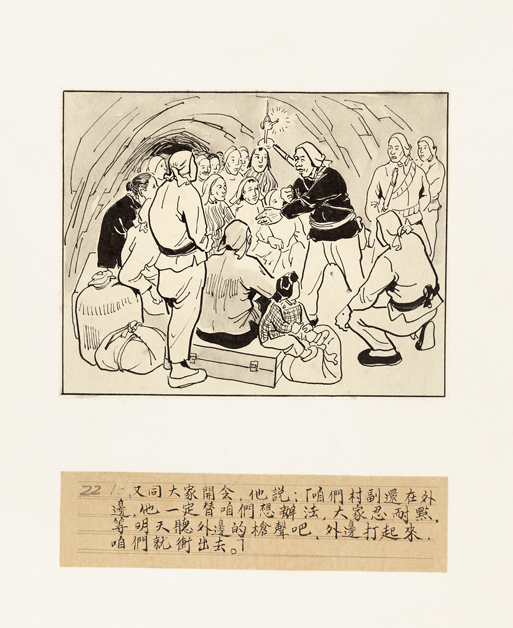 22 又同大家開会,他説:「咱們村副還在外
邊,他一定替咱們想辦法,大家忍耐點,
等明天聽外邊的槍聲吧,外邊打起來,
咱們就衝出去。」